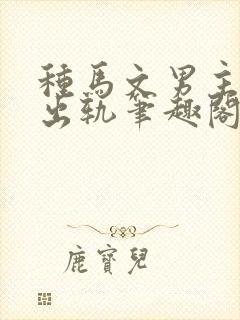 種馬文男主
出軌筆趣閣
鹿寶兒